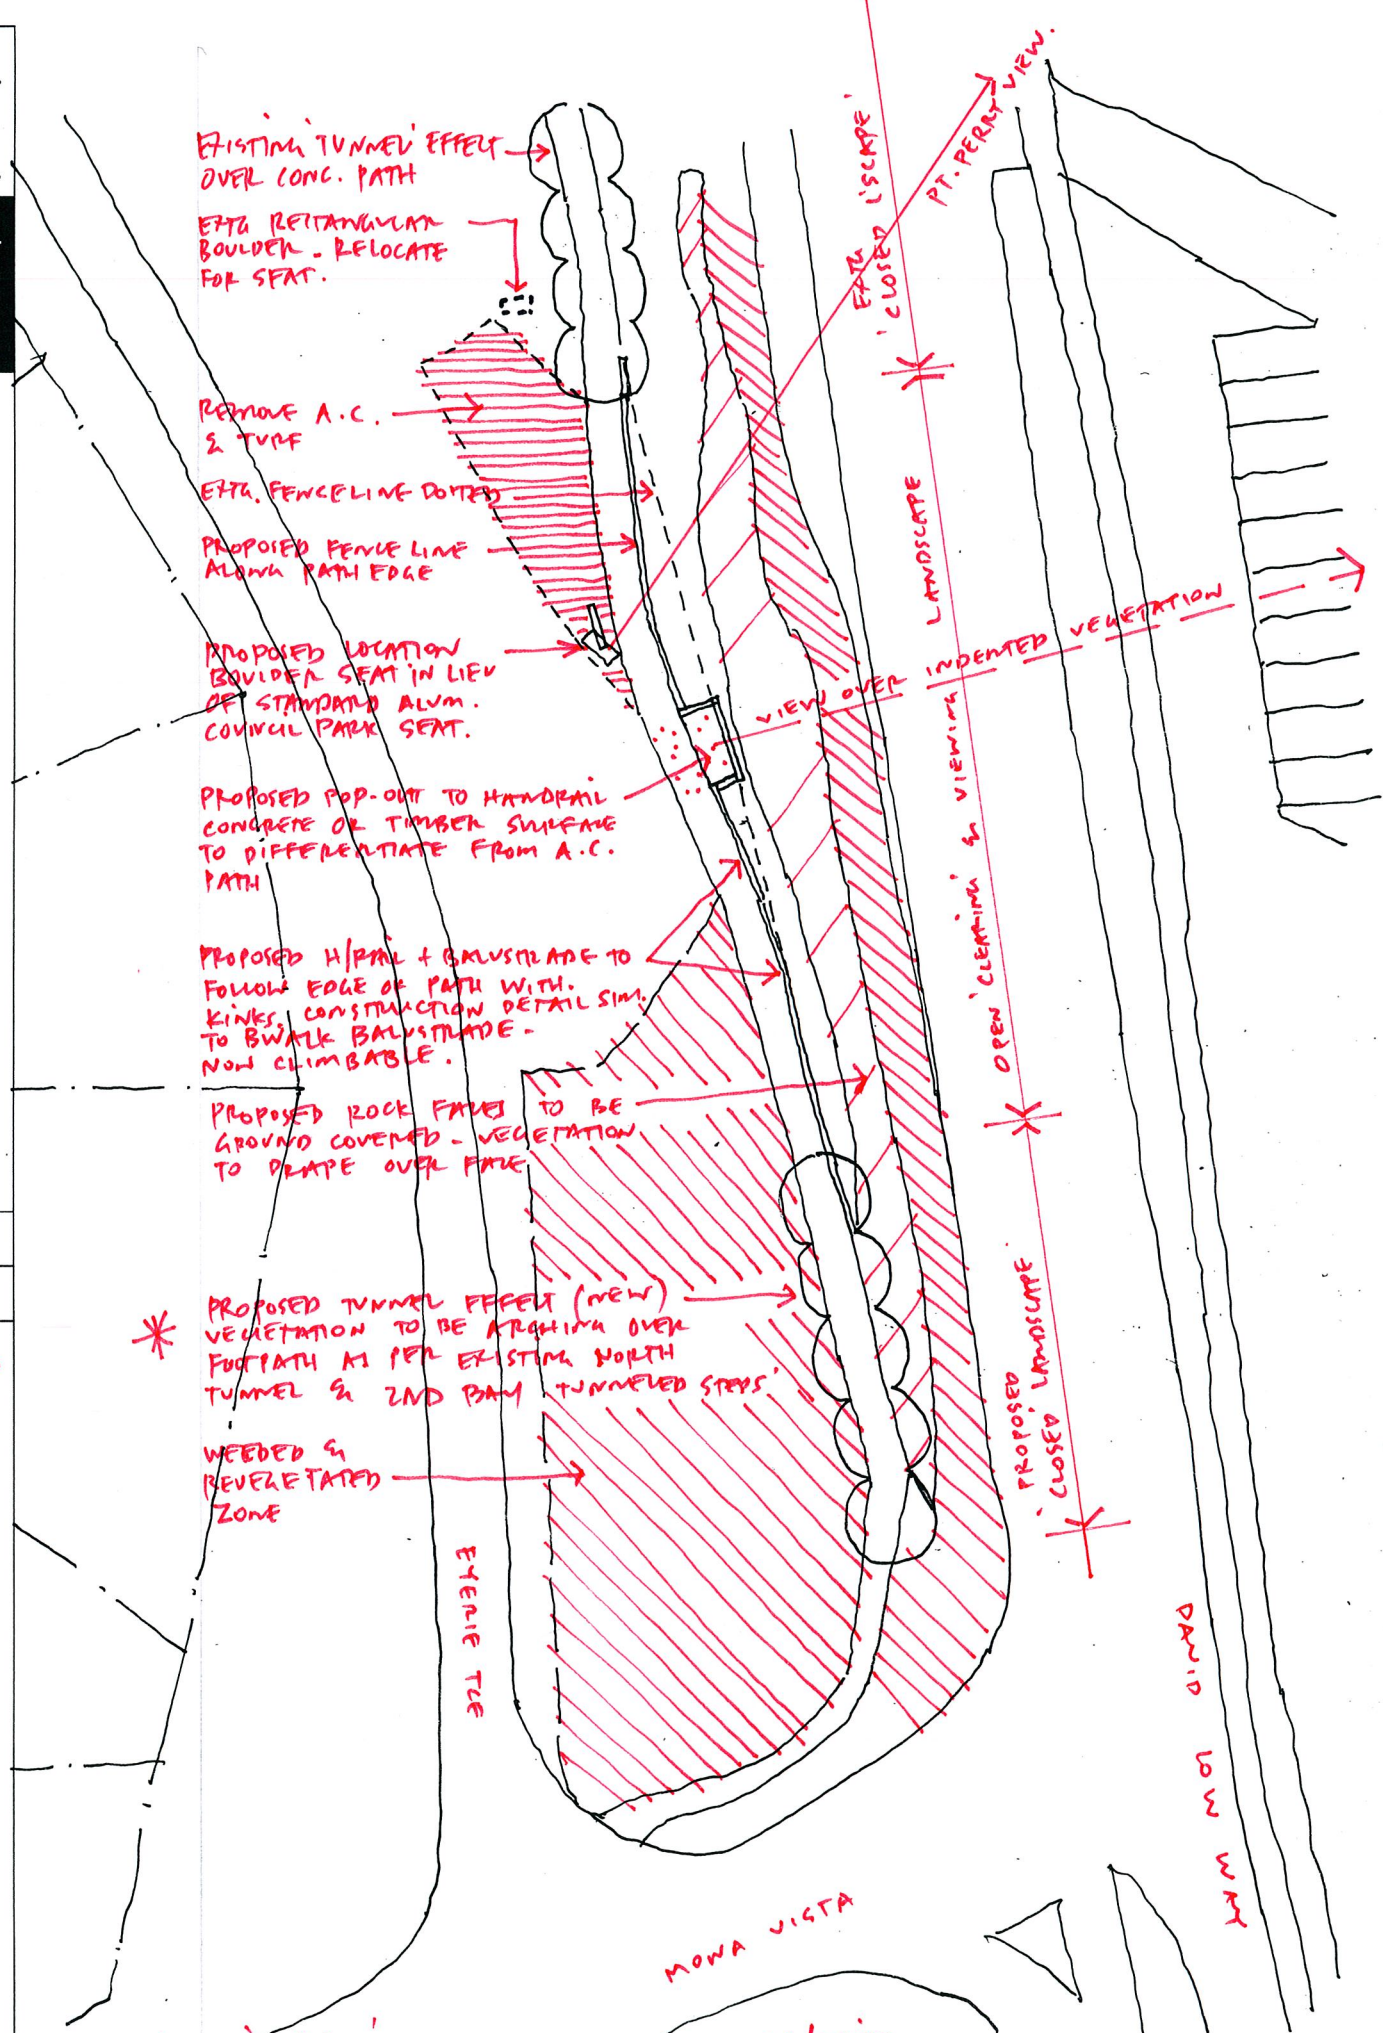 EXISTING 'TUNNEL' EFFECT
OVER CONC. PATH
EXTG RECTANGULAR
BOULDER - RELOCATE
FOR SEAT.
REMOVE A.C.
& TURF
EXTG. FENCELINE DOTTED
PROPOSED FENCE LINE
ALONG PATH EDGE
PROPOSED LOCATION
BOULDER SEAT IN LIEU
OF STANDARD ALUM.
COUNCIL PARK SEAT.
PROPOSED POP-OUT TO HANDRAIL
CONCRETE OR TIMBER SURFACE
TO DIFFERENTIATE FROM A.C.
PATH
PROPOSED H/RAIL + BALUSTRADE TO
FOLLOW EDGE OF PATH WITH.
KINKS, CONSTRUCTION DETAIL SIM.
TO BWALK BALUSTRADE -
NON CLIMBABLE.
PROPOSED ROCK FACES TO BE
GROUND COVERED - VEGETATION
TO DRAPE OVER FACE
PROPOSED TUNNEL EFFECT (NEW)
VEGETATION TO BE ARCHING OVER
FOOTPATH AS PER EXISTING NORTH
TUNNEL & 2ND BAY 'TUNNELED STEPS'
WEEDED &
REVEGETATED
ZONE
EXTG
'CLOSED L'SCAPE'
PT. PERRY VIEW.
OPEN 'CLEARING' & VIEWING LANDSCAPE
VIEW OVER INDENTED VEGETATION
PROPOSED
'CLOSED LANDSCAPE'
EYERIE TCE
DAVID LOW WAY
MONA VISTA